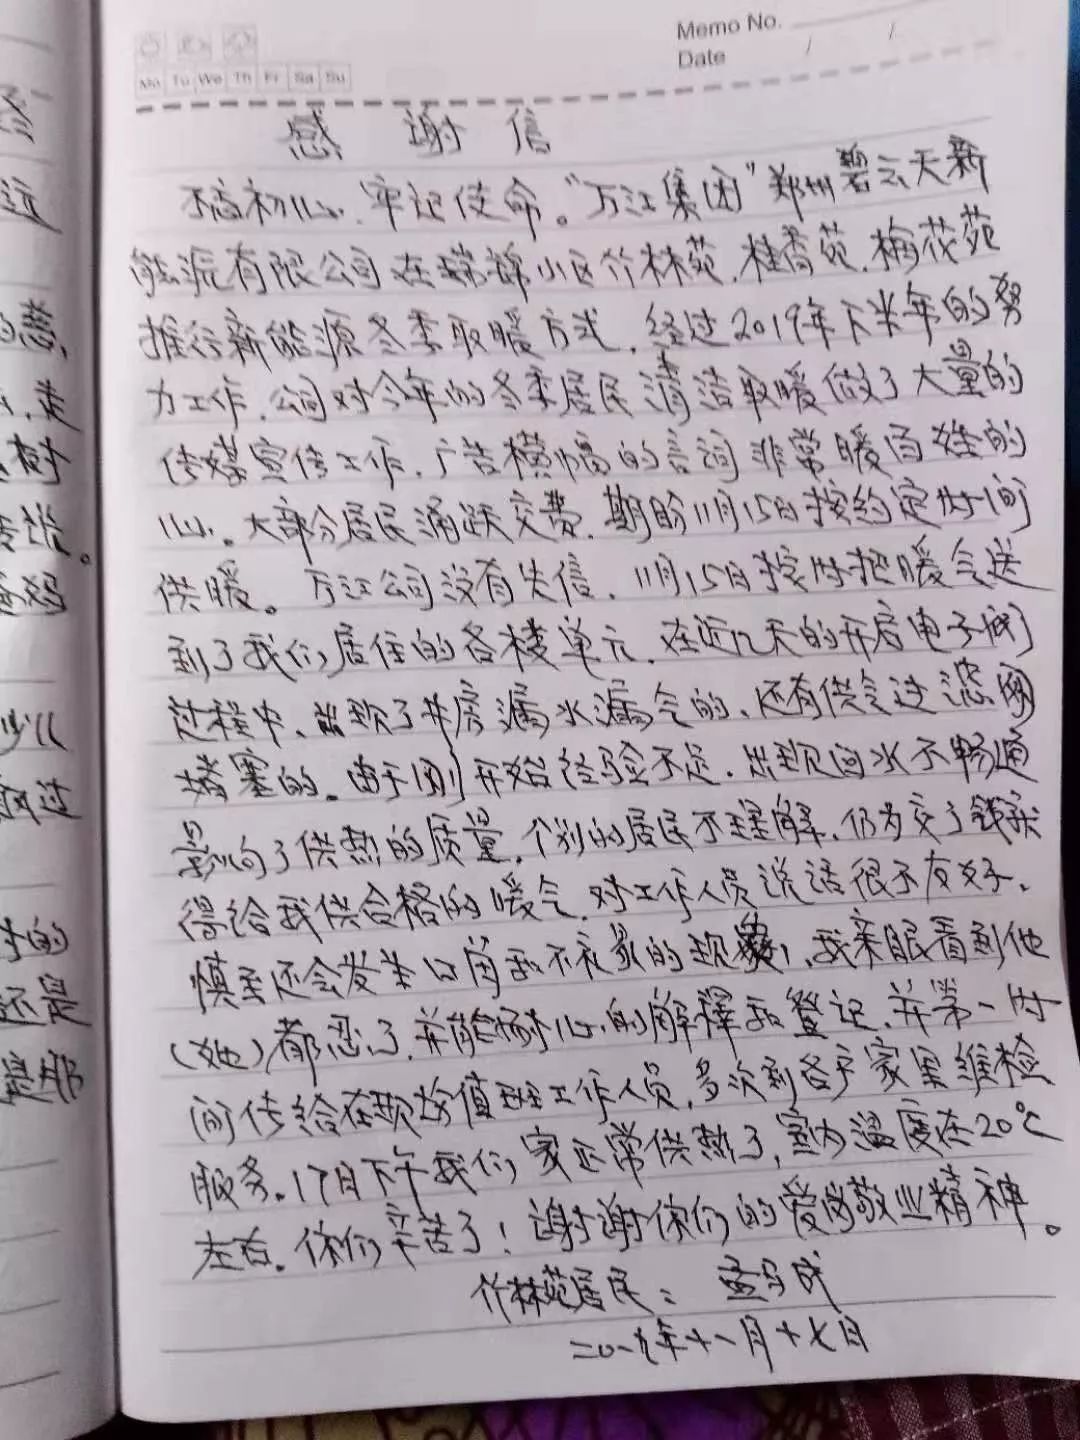 Memo No.
Date / /
Mo Tu We Th Fr Sa Su
感谢信
不忘初心、牢记使命。“万江集团”郑州碧云天新
能源有限公司在瑞锦小区竹林苑、桂香苑、梅花苑
推行新能源冬季取暖方式，经过2019年下半年的努
力工作，公司对今年的冬季居民清洁取暖做了大量的
传媒宣传工作，广告横幅的言词非常暖百姓的
心。大部分居民涌跃交费，期盼11月15日按约定时间
供暖。万江公司没有失信，11月15日按时把暖气送
到了我们居住的各楼单元，在近几天的开启电子阀
过程中、出现了井房漏水漏气的、还有供气过滤网
堵塞的。由于刚开始经验不足，出现回水不畅通
影响了供热的质量，个别的居民不理解，仍为交了钱就
得给我供合格的暖气，对工作人员说话很不友好、
慎至还会发生口角和不礼貌的现象，我亲眼看到他
（她）都忍了，并能耐心的解释和登记，并第一时
间传给在现场值班工作人员，多次到各户家里维检
服务。17日下午我们家正常供热了，室内温度在20℃
左右。你们辛苦了！谢谢你们的爱岗敬业精神。
竹林苑居民：孟
二〇一九年十一月十七日